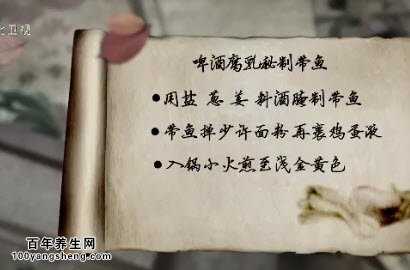 七卫视
啤酒腐乳秘制带鱼
●用盐 葱 姜 料酒腌制带鱼
●带鱼掸少许面粉再裹鸡蛋液
●入锅小火煎至浅金黄色
百年养生网
100yangsheng.com